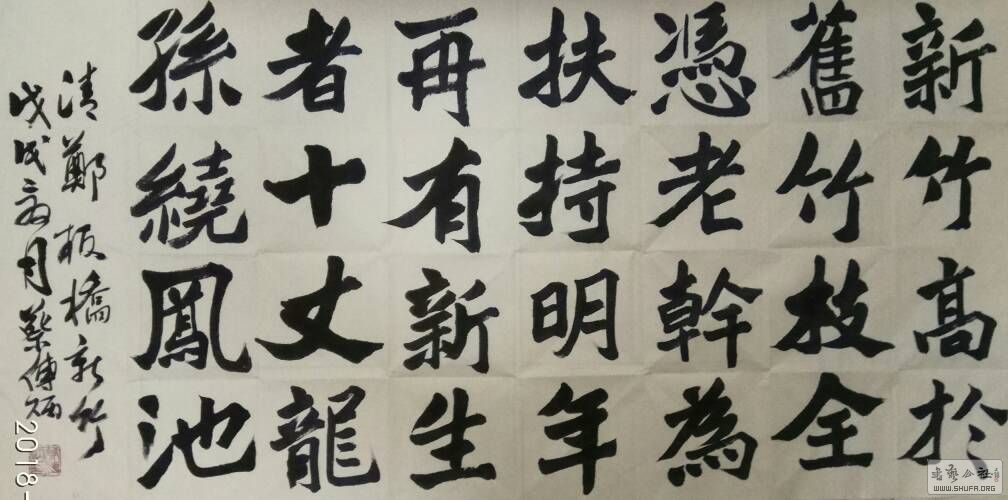 新竹高於
舊竹枝全
憑老幹為
扶持明年
再有新生
者十丈龍
孫繞鳳池
清鄭板橋新竹
戊戌
月蔡傳炳
2018-
WWW.SHUFA.ORG